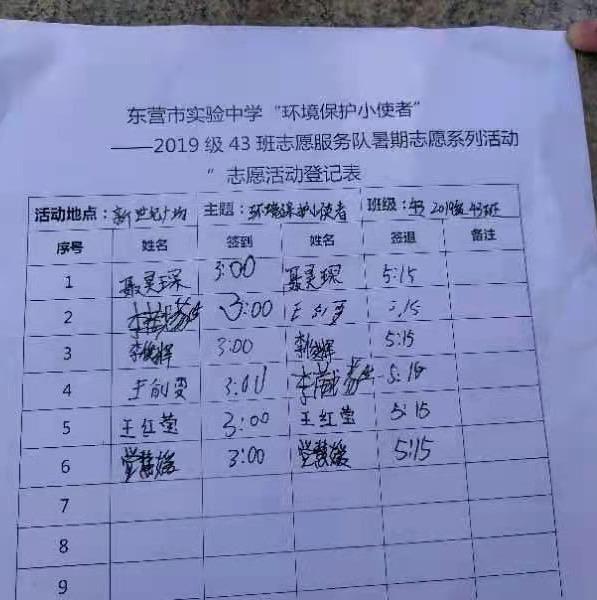 东营市实验中学“环境保护小使者”
——2019 级 43 班志愿服务队暑期志愿系列活动
” 志愿活动登记表
活动地点：新世纪广场 主题：环境保护小使者 班级： 2019级 43班
序号 姓名 签到 姓名 签退 备注
1 聂昊琛 3:00 聂昊琛 5:15
2 3:00 5:15
3 李俊辉 3:00 李俊辉 5:15
4 3:00 5:15
5 王红莹 3:00 王红莹 5:15
6 3:00 5:15
7
8
9